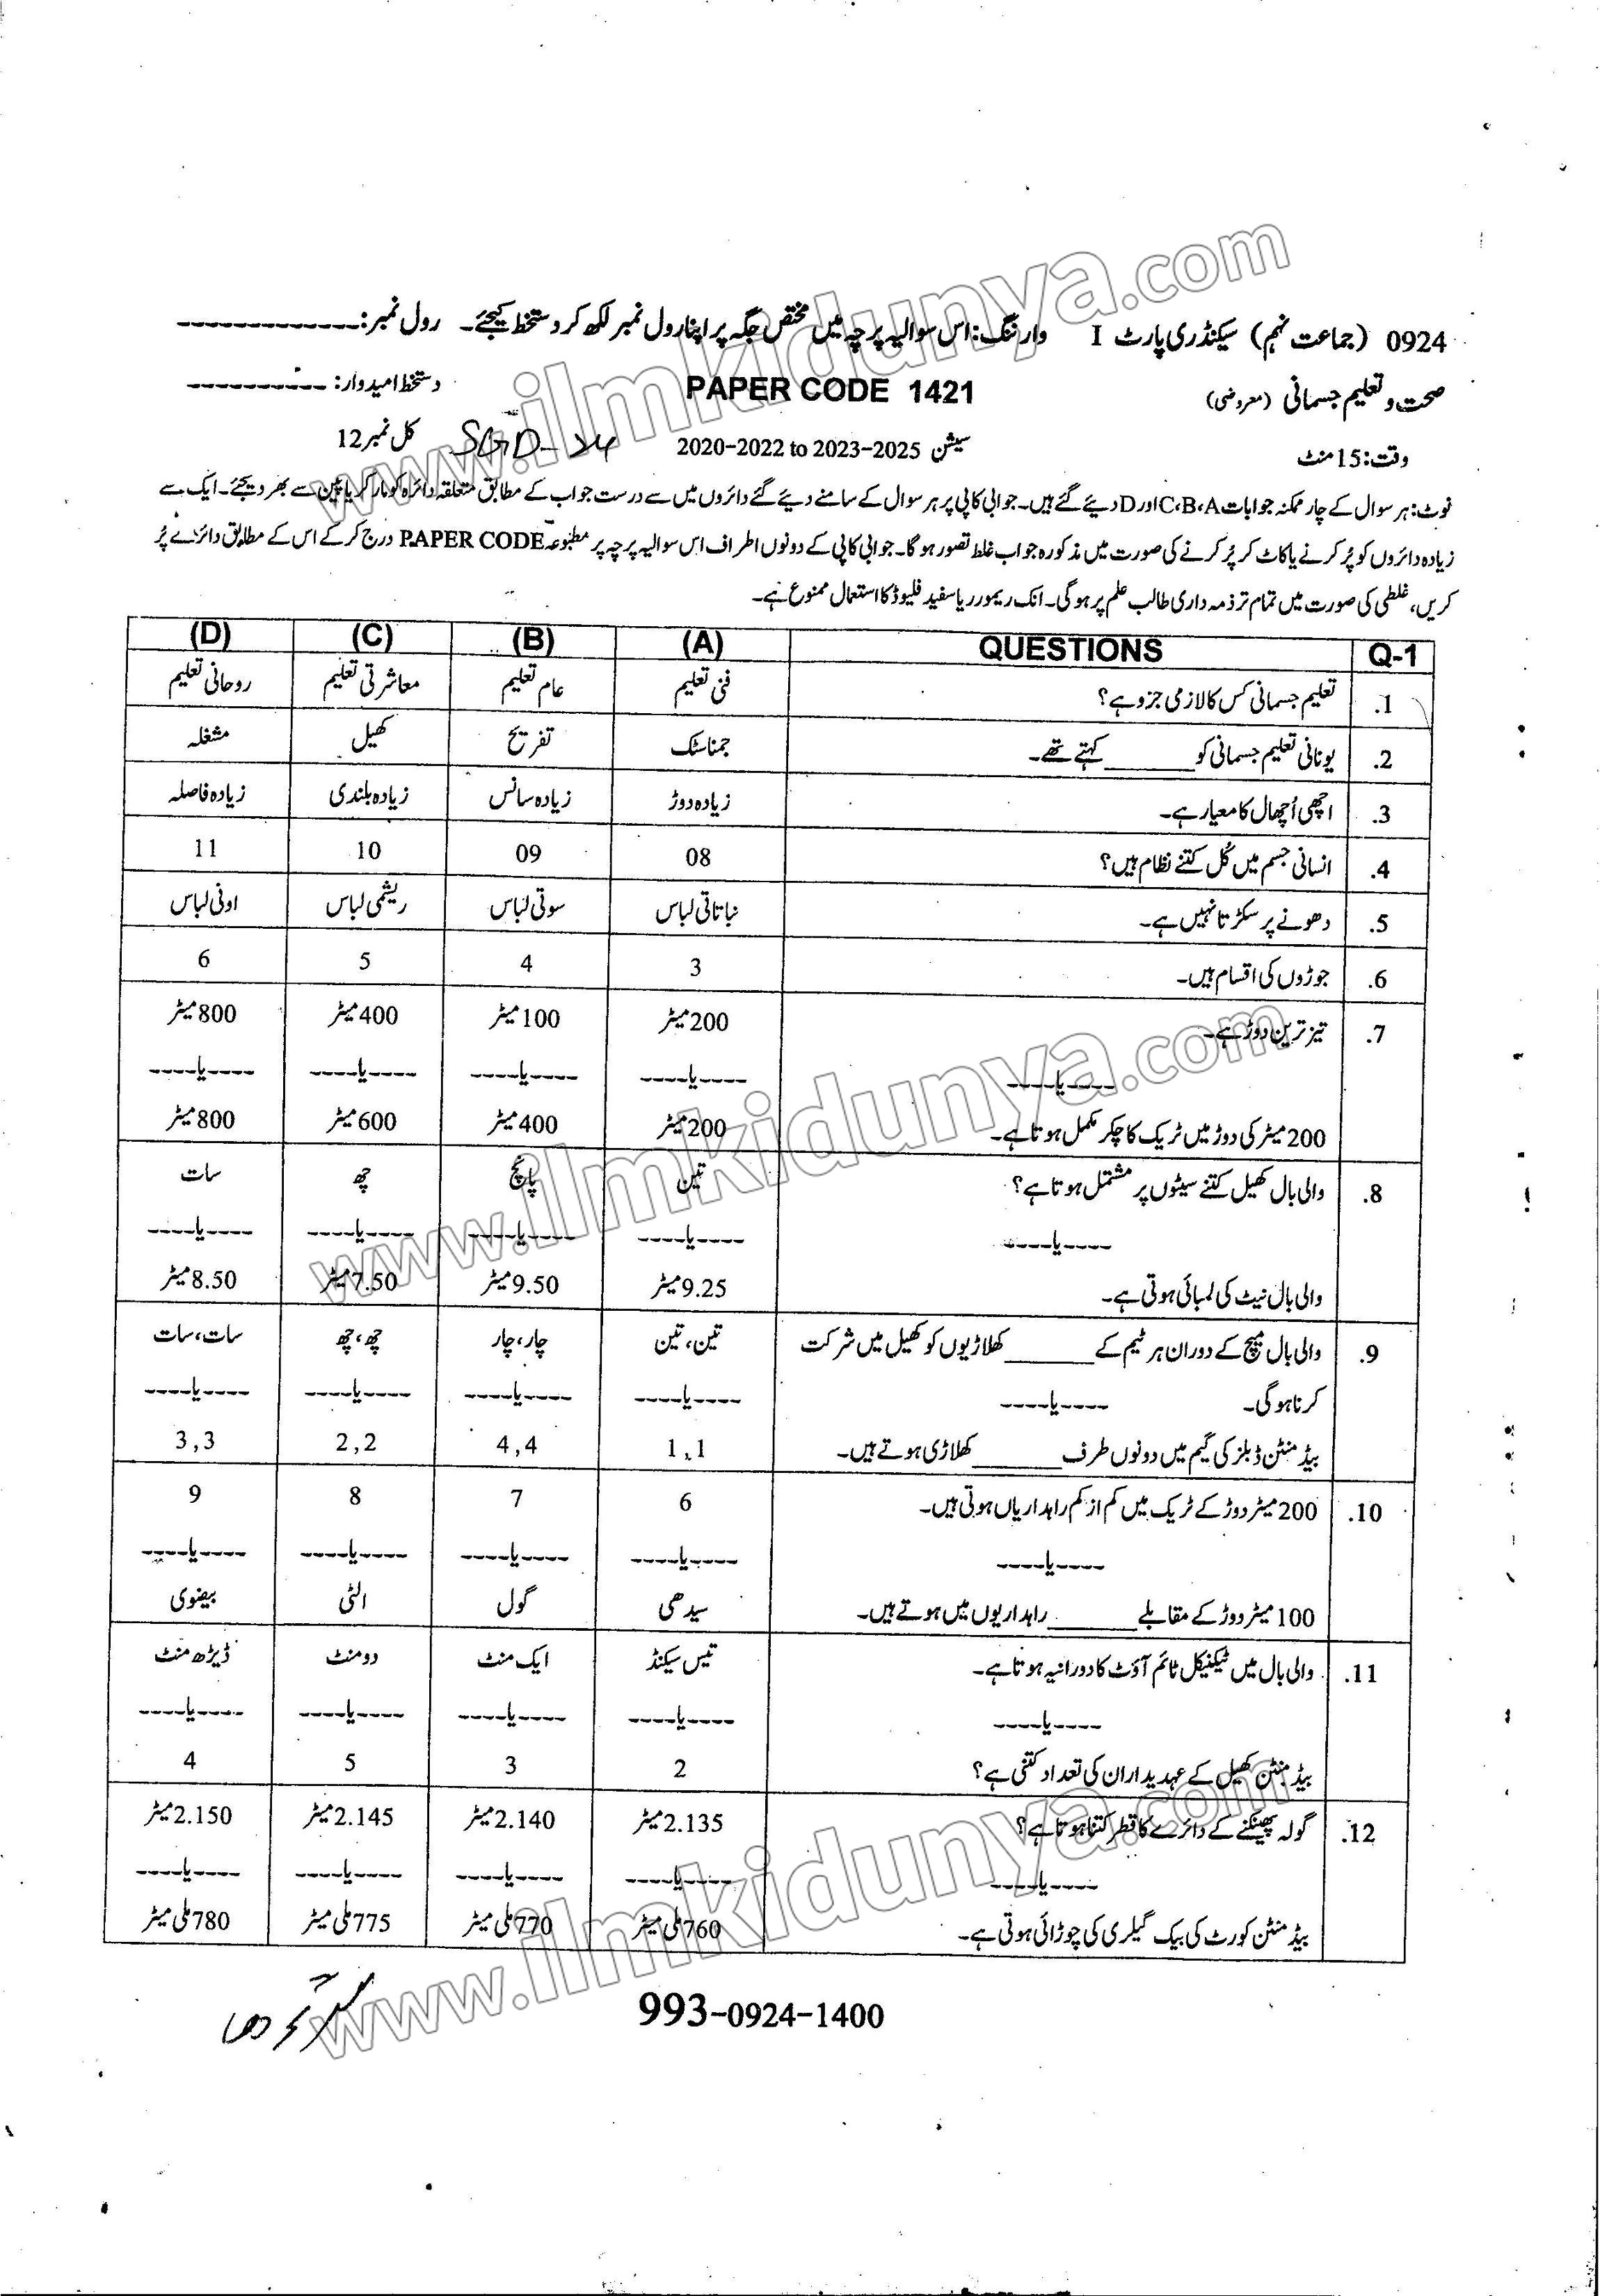 0924 (جماعت نہم) سیکنڈری پارٹ I وارننگ: اس سوالیہ پرچہ میں مختص جگہ پر اپنا رول نمبر لکھ کر دستخط کیجئے۔ رول نمبر: -------------
صحت و تعلیم جسمانی (معروضی) PAPER CODE 1421 دستخط امیدوار: ----------
وقت: 15 منٹ سیشن 2020-2022 to 2023-2025 SGD-24 کل نمبر 12
نوٹ: ہر سوال کے چار ممکنہ جوابات C،B،A اور D دیئے گئے ہیں۔ جوابی کاپی پر ہر سوال کے سامنے دیئے گئے دائروں میں سے درست جواب کے مطابق متعلقہ دائرہ کو مارکر یا پین سے بھر دیجئے۔ ایک سے
زیادہ دائروں کو پُر کرنے یا کاٹ کر پُر کرنے کی صورت میں مذکورہ جواب غلط تصور ہوگا۔ جوابی کاپی کے دونوں اطراف اس سوالیہ پرچہ پر مطبوعہ PAPER CODE درج کر کے اس کے مطابق دائرے پُر
کریں، غلطی کی صورت میں تمام تر ذمہ داری طالب علم پر ہوگی۔ انک ریموور یا سفید فلیوڈ کا استعمال ممنوع ہے۔
Q-1 QUESTIONS (A) (B) (C) (D)
1. تعلیم جسمانی کس کا لازمی جزو ہے؟ فنی تعلیم عام تعلیم معاشرتی تعلیم روحانی تعلیم
2. یونانی تعلیم جسمانی کو ______ کہتے تھے۔ جمناسٹک تفریح کھیل مشغلہ
3. اچھی اُچھال کا معیار ہے۔ زیادہ دوڑ زیادہ سانس زیادہ بلندی زیادہ فاصلہ
4. انسانی جسم میں کُل کتنے نظام ہیں؟ 08 09 10 11
5. دھونے پر سکڑتا نہیں ہے۔ نباتاتی لباس سوتی لباس ریشمی لباس اونی لباس
6. جوڑوں کی اقسام ہیں۔ 3 4 5 6
7. تیز ترین دوڑ ہے۔ 200 میٹر 100 میٹر 400 میٹر 800 میٹر
----یا---- ----یا---- ----یا---- ----یا---- ----یا----
200 میٹر کی دوڑ میں ٹریک کا چکر مکمل ہوتا ہے۔ 200 میٹر 400 میٹر 600 میٹر 800 میٹر
8. والی بال کھیل کتنے سیٹوں پر مشتمل ہوتا ہے؟ تین پانچ چھ سات
----یا---- ----یا---- ----یا---- ----یا---- ----یا----
والی بال نیٹ کی لمبائی ہوتی ہے۔ 9.25 میٹر 9.50 میٹر 7.50 میٹر 8.50 میٹر
9. والی بال میچ کے دوران ہر ٹیم کے ______ کھلاڑیوں کو کھیل میں شرکت تین، تین چار، چار چھ، چھ سات، سات
کرنا ہوگی۔ ----یا---- ----یا---- ----یا---- ----یا---- ----یا----
بیڈ منٹن ڈبلز کی گیم میں دونوں طرف ______ کھلاڑی ہوتے ہیں۔ 1,1 4,4 2,2 3,3
10. 200 میٹر دوڑ کے ٹریک میں کم از کم راہداریاں ہوتی ہیں۔ 6 7 8 9
----یا---- ----یا---- ----یا---- ----یا---- ----یا----
100 میٹر دوڑ کے مقابلے ______ راہداریوں میں ہوتے ہیں۔ سیدھی گول الٹی بیضوی
11. والی بال میں ٹیکنیکل ٹائم آؤٹ کا دورانیہ ہوتا ہے۔ تیس سیکنڈ ایک منٹ دو منٹ ڈیڑھ منٹ
----یا---- ----یا---- ----یا---- ----یا---- ----یا----
بیڈ منٹن کھیل کے عہدیداران کی تعداد کتنی ہے؟ 2 3 5 4
12. گولہ پھینکنے کے دائرے کا قطر کتنا ہوتا ہے؟ 2.135 میٹر 2.140 میٹر 2.145 میٹر 2.150 میٹر
----یا---- ----یا---- ----یا---- ----یا---- ----یا----
بیڈ منٹن کورٹ کی بیک گیلری کی چوڑائی ہوتی ہے۔ 760 ملی میٹر 770 ملی میٹر 775 ملی میٹر 780 ملی میٹر
993-0924-1400
www.ilmkidunya.com
www.ilmkidunya.com
www.ilmkidunya.com